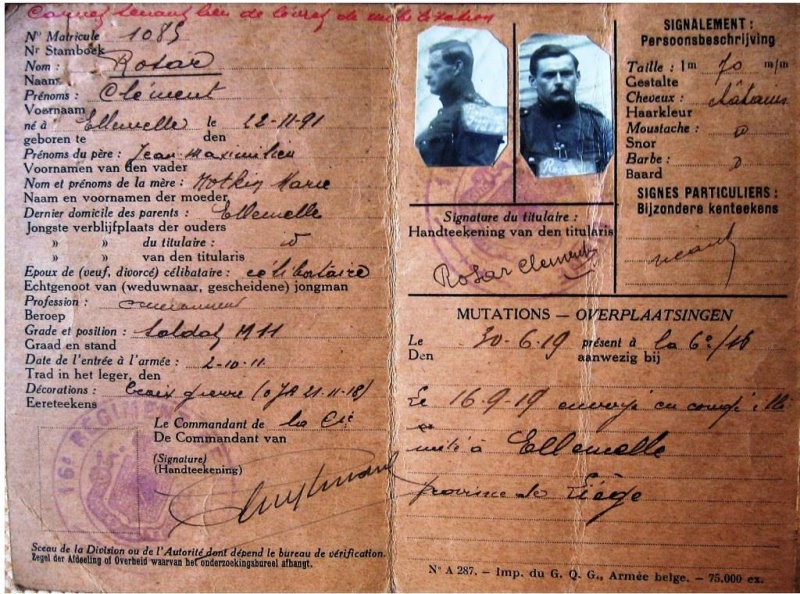 Carnet tenant lieu de livret de mobilisation
No Matricule 1085
Nr Stamboek
Nom : Rosar
Naam
Prénoms : Clément
Voornaam
né à Ellemelle le 22-11-91
geboren te den
Prénoms du père : Jean Maximilien
Voornamen van den vader
Nom et prénoms de la mère : Marie
Naam en voornamen der moeder
Dernier domicile des parents : Ellemelle
Jongste verblijfplaats der ouders
» » du titulaire : id
» » van den titularis
Epoux de (veuf, divorcé) célibataire : célibataire
Echtgenoot van (weduwnaar, gescheidene) jongman
Profession :
Beroep
Grade et position : Soldat 1911
Graad en stand
Date de l'entrée à l'armée : 2-10-11
Trad in het leger, den
Décorations : Croix guerre (OJA 21-11-18)
Eereteekens
Le Commandant de la Cie
De Commandant van
(Signature)
(Handteekening)
16e REGIMENT
Sceau de la Division ou de l'Autorité dont dépend le bureau de vérification.
Zegel der Afdeeling of Overheid waarvan het onderzoekingsbureel afhangt.
Signature du titulaire :
Handteekening van den titularis
Rosar Clement
SIGNALEMENT :
Persoonsbeschrijving
Taille : 1m 70 m/m
Gestalte
Cheveux : châtains
Haarkleur
Moustache : o
Snor
Barbe : o
Baard
SIGNES PARTICULIERS :
Bijzondere kenteekens
néant
MUTATIONS — OVERPLAATSINGEN
Le 30-6-19 présent à la 6e/16
Den aanwezig bij
Le 16-9-19 envoyé en congé illi
mité à Ellemelle
province de Liège
No A 287. – Imp. du G. Q. G., Armée belge. – 75.000 ex.